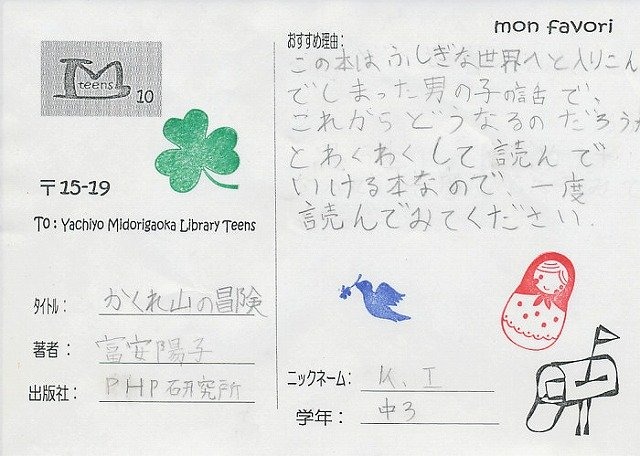 mon favori
teens
10
〒15-19
TO: Yachiyo Midorigaoka Library Teens
タイトル: かくれ山の冒険
著者: 富安陽子
出版社: PHP研究所
おすすめ理由:
この本はふしぎな世界へと入りこん
でしまった男の子の話で、
これからどうなるのだろうか
とわくわくして読んで
いける本なので、一度
読んでみてください.
ニックネーム: K.I
学年: 中3